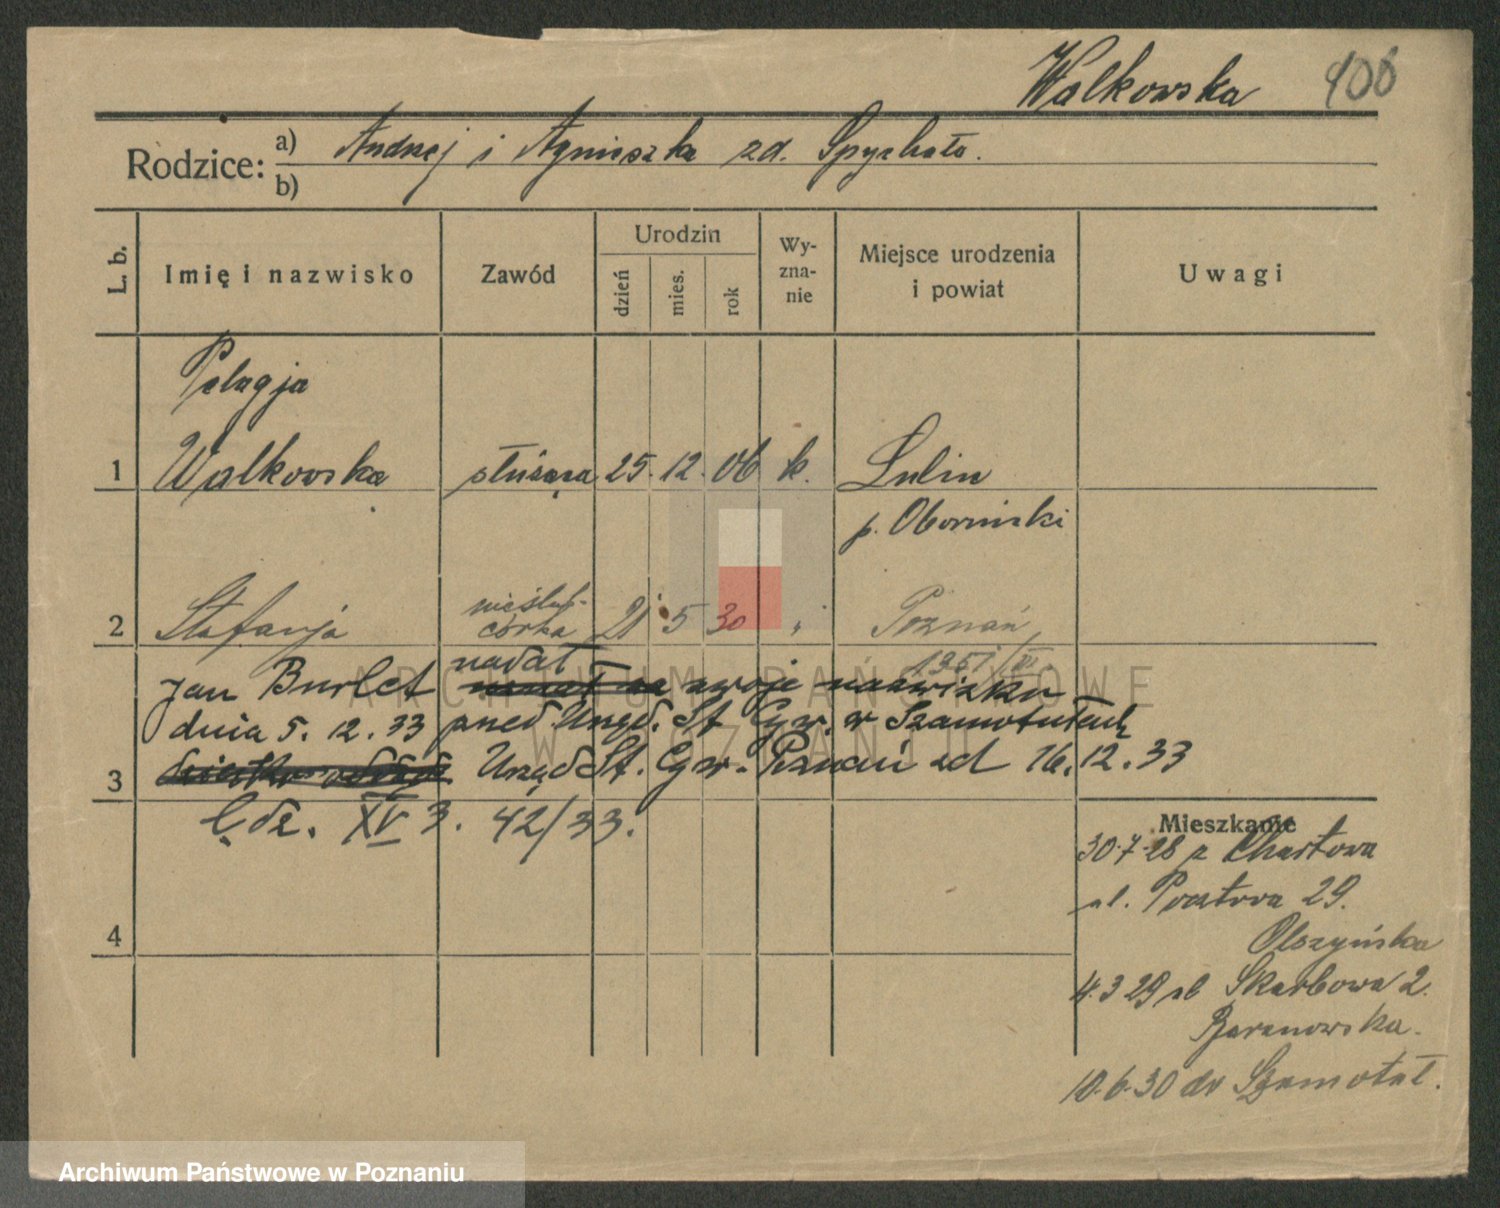 Walkowska 106
Rodzice: a) Andrzej i Agnieszka zd. Spychała.
b)
L. b.
Imię i nazwisko
Zawód
Urodzin
dzień
mies.
rok
Wy-
zna-
nie
Miejsce urodzenia
i powiat
Uwagi
Pelagja
1 Walkowska służąca 25. 12. 06 k. Lulin
p. Obornicki
nieślub-
2 Stefanja córka 21 5 30 " Poznań
1951/VI
nadał
Jan Burlet swoje nazwisko
dnia 5. 12. 33 przed Urzęd. St. Cyw. w Szamotułach
3 Urząd St. Cyw. Poznań zd 16. 12. 33
L. dz. XV 3. 42/33.
Mieszkanie
30.7.28 z Chartowa
ul. Pocztowa 29.
4 Olszyńska
4.3 29 ul Skarbowa 2.
Baranowska.
10.6.30 do Szamotuł.
ARCHIWUM PAŃSTWOWE
W POZNANIU
Archiwum Państwowe w Poznaniu